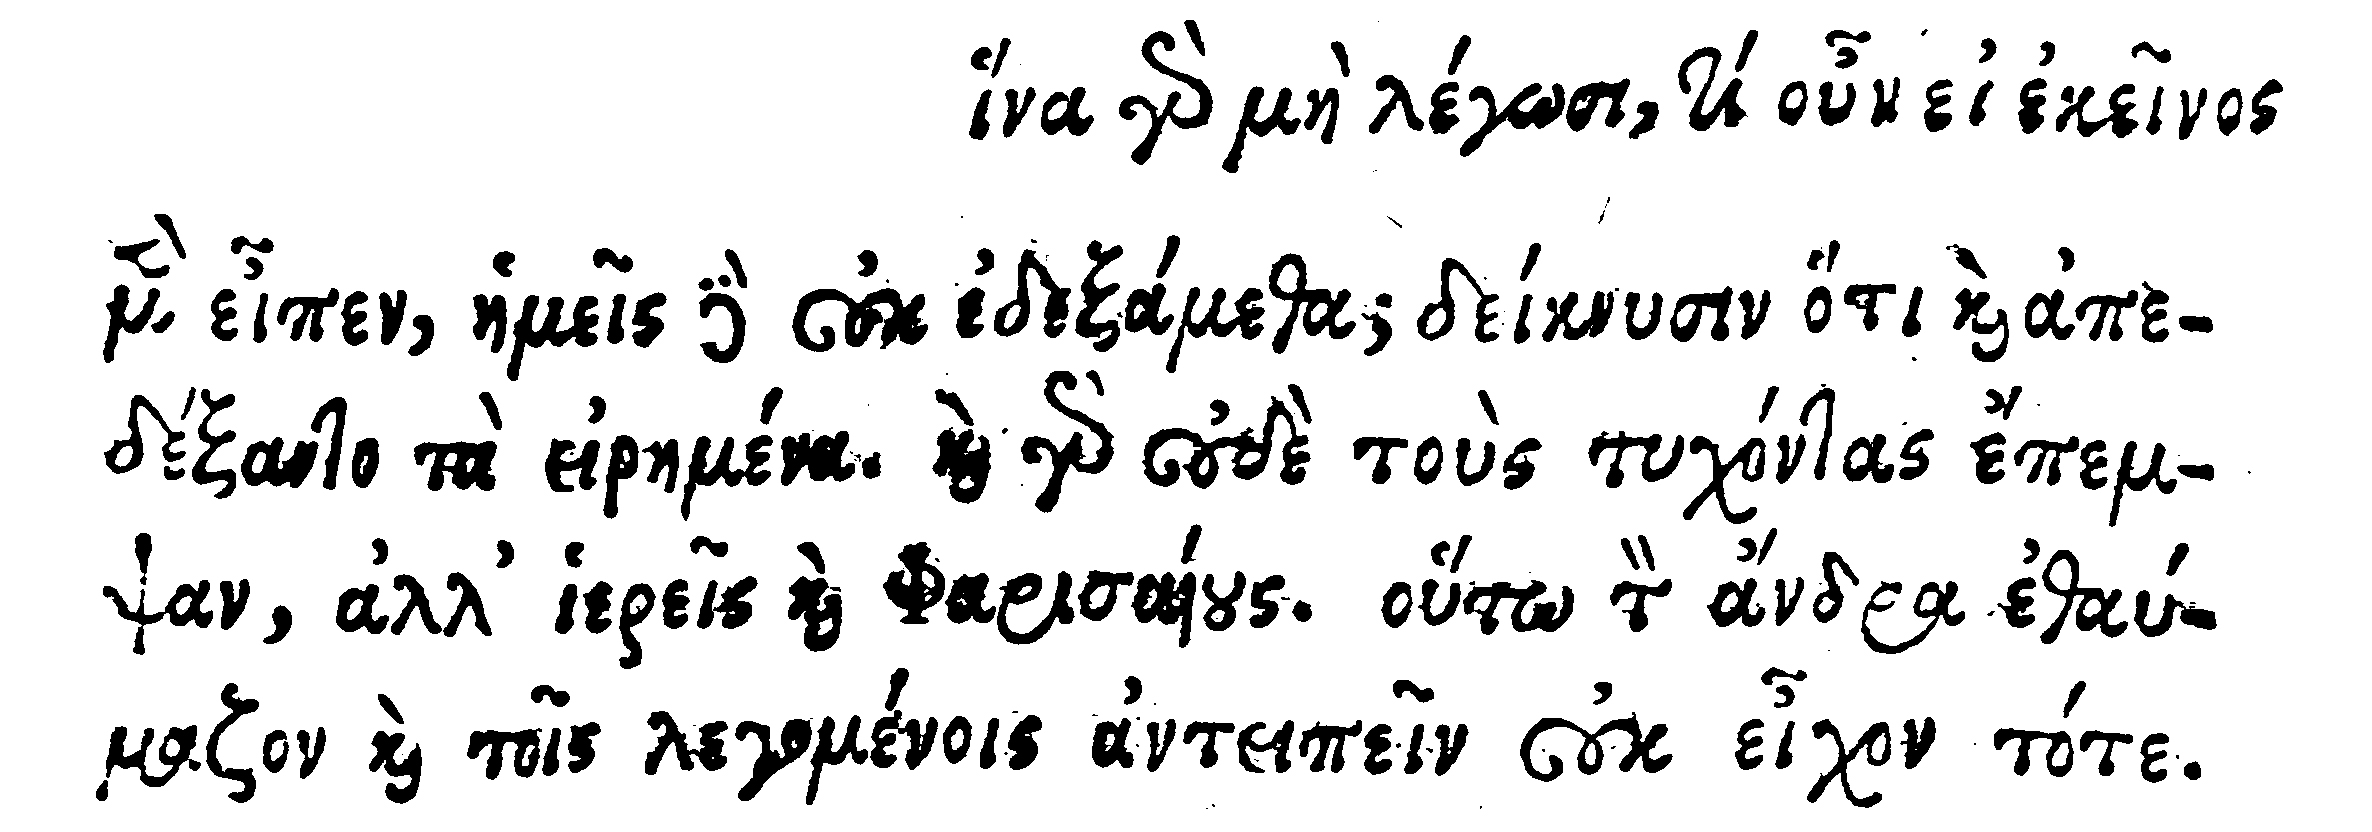 ἵνα γὰρ μὴ λέγωσι, τί οὖν εἰ ἐκεῖνος
μὲν εἶπεν, ἡμεῖς δὲ οὐκ ἐδεξάμεθα; δείκνυσιν ὅτι καὶ ἀπε-
δέξαντο τὰ εἰρημένα. καὶ γὰρ οὐδὲ τοὺς τυχόντας ἔπεμ-
ψαν, ἀλλ' ἱερεῖς καὶ Φαρισαίους. οὕτω τὸν ἄνδρα ἐθαύ-
μαζον καὶ τοῖς λεγομένοις ἀντειπεῖν οὐκ εἶχον τότε.